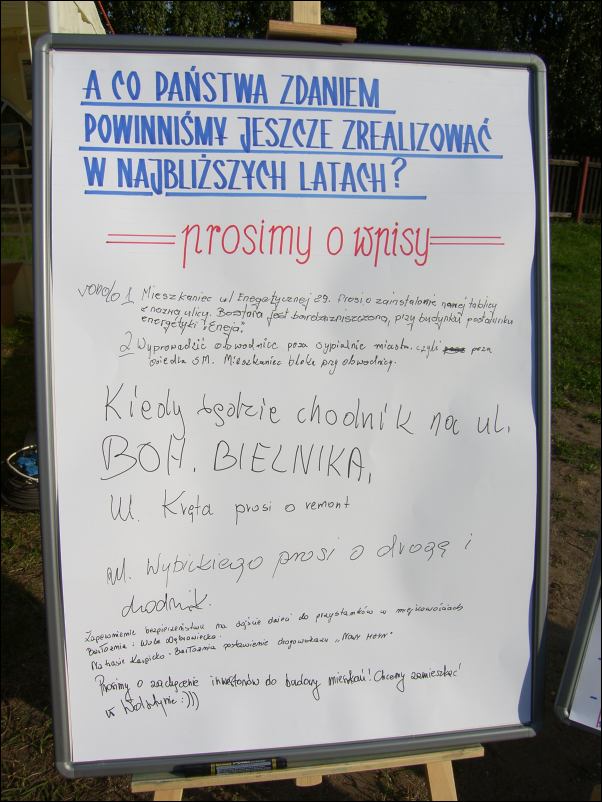 A CO PAŃSTWA ZDANIEM
POWINNIŚMY JESZCZE ZREALIZOWAĆ
W NAJBLIŻSZYCH LATACH?
prosimy o wpisy
1 Mieszkaniec ul Enegetycznej 89. Prosi o zainstalonie nowej tablicy
z nazwą ulicy. Bo stara jest bardzo zniszczona, przy budynku posterunku
energetyki "Eneja".
2 Wyprowadzić obwodnice poza sypialnie miasta. czyli poza
osiedla SM. Mieszkaniec bloku przy obwodnicy.
Kiedy będzie chodnik na ul.
BOH. BIELNIKA,
Ul. Kręta prosi o remont
ul. Wybickiego prosi o drogę i
chodnik.
Zapewnienie bezpieczeństwa na dojście dzieci do przystanków w miejscowościach
Barłożnia i Wola Dąbrowiecka.
Na trasie Karpicko - Barłożnia postawienie drogowskazu "NOWY MŁYN"
Prosimy o zachęcenie inwestorów do budowy mieszkań! Chcemy zamieszkać
w Wolsztynie :)))